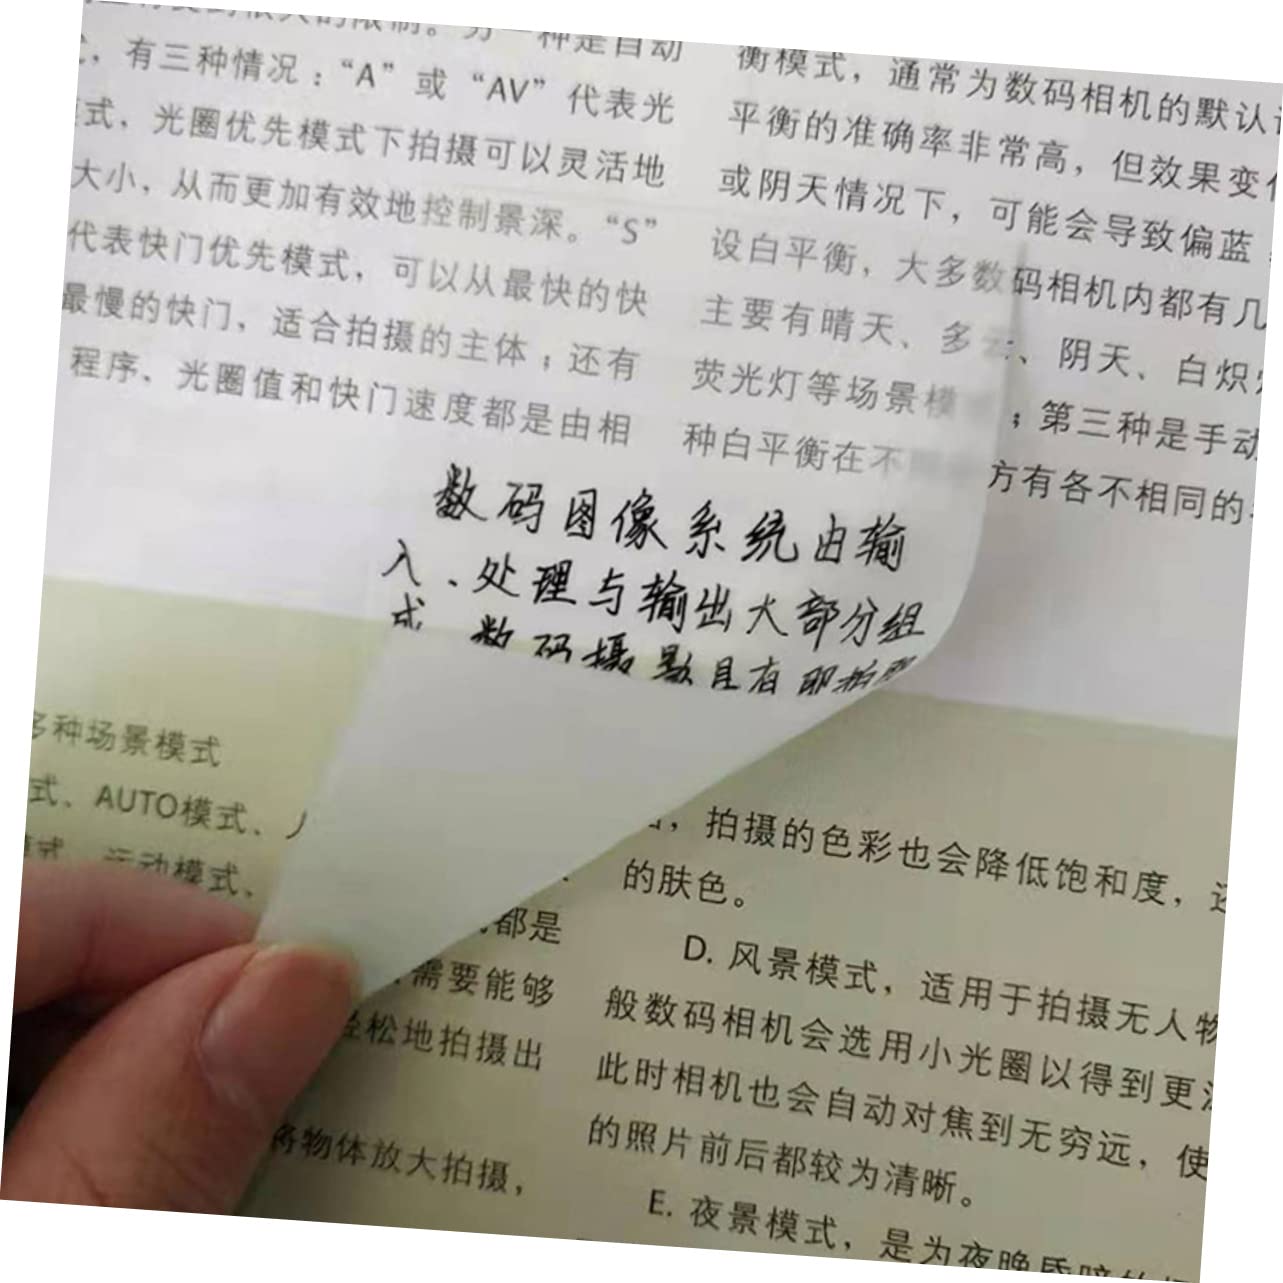 有三种情况：“A”或“AV”代表光
式，光圈优先模式下拍摄可以灵活地
大小，从而更加有效地控制景深。“S”
代表快门优先模式，可以从最快的快
最慢的快门，适合拍摄的主体；还有
程序、光圈值和快门速度都是由相
衡模式，通常为数码相机的默认
平衡的准确率非常高，但效果变
或阴天情况下，可能会导致偏蓝
设白平衡，大多数码相机内都有几
主要有晴天、多云、阴天、白炽
荧光灯等场景模；第三种是手动
种白平衡在不方有各不相同的
数码图像系统由输
入、处理与输出大部分组
成 数码摄影具有即拍即
多种场景模式
式、AUTO模式、
模式、运动模式、
都是
需要能够
轻松地拍摄出
将物体放大拍摄，
，拍摄的色彩也会降低饱和度，还
的肤色。
D. 风景模式，适用于拍摄无人物
般数码相机会选用小光圈以得到更
此时相机也会自动对焦到无穷远，使
的照片前后都较为清晰。
E. 夜景模式，是为夜晚昏暗的